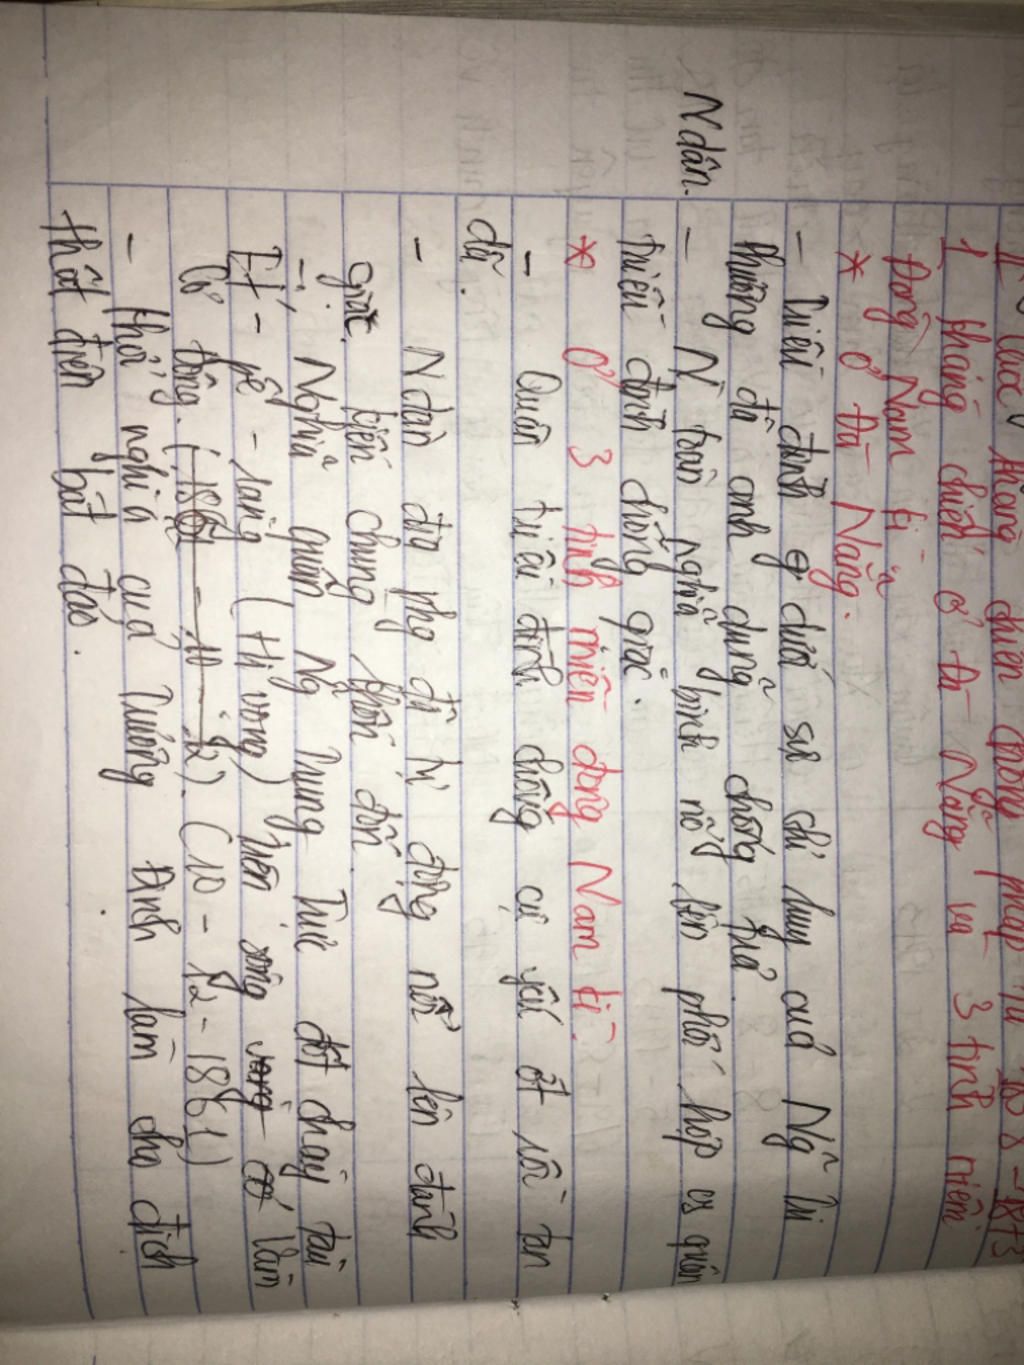 chống Pháp từ 1858 - 1873
1. kháng chiến ở Đà Nẵng và 3 tỉnh miền
Đông Nam kì
* Ở Đà Nẵng.
- Triều đình dưới sự chỉ huy của Ng~ Tri
Phương đã anh dũng chống trả.
Ndân.
- N toàn nghĩa binh nổi lên phối hợp vs quân
triều đình chống giặc.
* Ở 3 tỉnh miền đông Nam kì.
- Quân triều đình chống cự yếu ớt rồi tan
dã.
- Ndân địa phg đã tự động nổi lên đánh
giặc, kiên chung khốn đốn.
- Nghĩa quân Ng~ Trung Trực đốt cháy tàu
Ét - pê - răng (Hi vọng) trên sông vàng cỏ Vàm
Cỏ Đông. (10 - 12 - 1861)
- Khởi nghĩa của Trương Định làm cho địch
thất điên bát đảo.